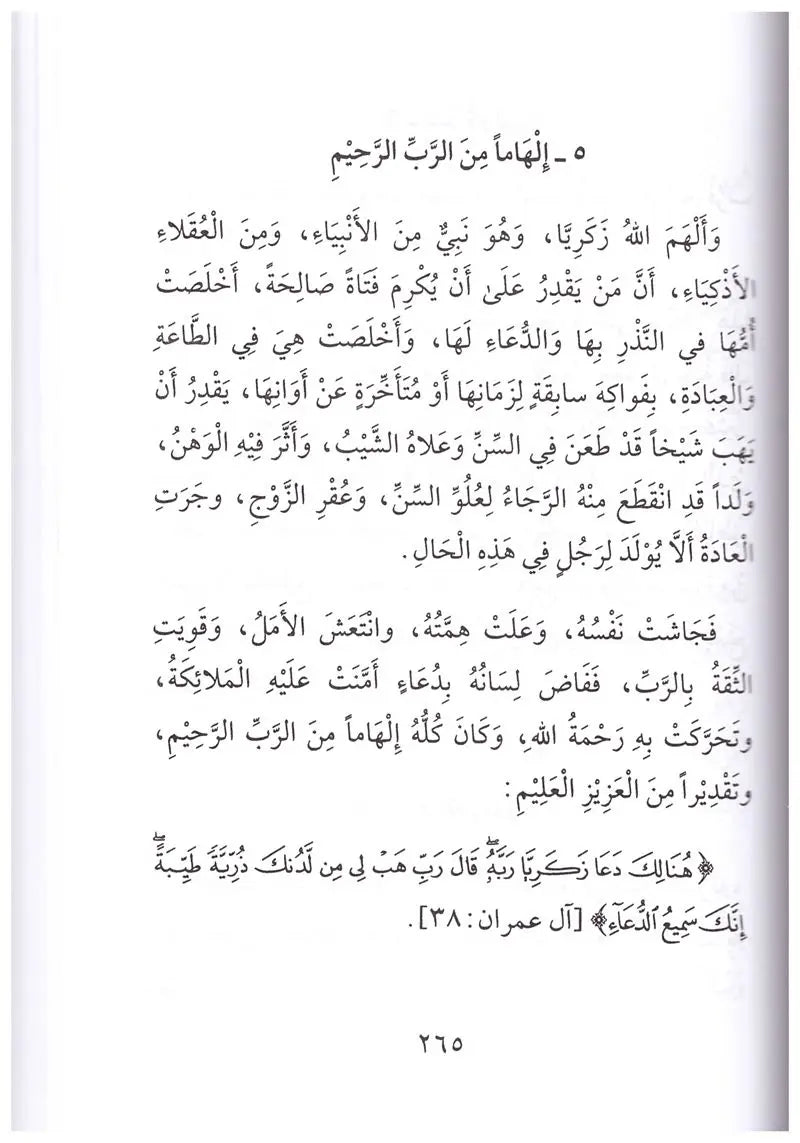 ٥ - إِلْهَاماً مِنَ الرَّبِّ الرَّحِيْمِ
وَأَلْهَمَ اللهُ زَكَرِيَّا، وَهُوَ نَبِيٌّ مِنَ الأَنْبِيَاءِ، وَمِنَ الْعُقَلاءِ
الأَذْكِيَاءِ، أَنَّ مَنْ يَقْدِرُ عَلَىٰ أَنْ يُكْرِمَ فَتَاةً صَالِحَةً، أَخْلَصَتْ
أُمُّهَا في النَّذْرِ بِهَا وَالدُّعَاءِ لَهَا، وَأَخْلَصَتْ هِيَ فِي الطَّاعَةِ
وَالْعِبَادَةِ، بِفَواكِهَ سابِقَةٍ لِزَمَانِهَا أَوْ مُتَأَخِّرَةٍ عَنْ أَوَانِهَا، يَقْدِرُ أَنْ
يَهَبَ شَيْخاً قَدْ طَعَنَ فِي السِّنِّ وَعَلاهُ الشَّيْبُ، وَأَثَّرَ فِيْهِ الْوَهْنُ،
وَلَداً قَدِ انْقَطَعَ مِنْهُ الرَّجَاءُ لِعُلُوِّ السِّنِّ، وَعُقْرِ الزَّوْجِ، وجَرَتِ
الْعَادَةُ أَلَّا يُوْلَدَ لِرَجُلٍ فِي هَذِهِ الْحَالِ.
فَجَاشَتْ نَفْسُهُ، وَعَلَتْ هِمَّتُهُ، وانْتَعَشَ الأَمَلُ، وَقَوِيَتِ
الثِّقَةُ بِالرَّبِّ، فَفَاضَ لِسَانُهُ بِدُعَاءٍ أَمَّنَتْ عَلَيْهِ الْمَلائِكَةُ،
وتَحَرَّكَتْ بِهِ رَحْمَةُ اللهِ، وَكَانَ كُلُّهُ إِلْهَاماً مِنَ الرَّبِّ الرَّحِيْمِ،
وتَقْدِيْراً مِنَ الْعَزِيْزِ الْعَلِيْمِ:
﴿هُنَالِكَ دَعَا زَكَرِيَّا رَبَّهُۥۖ قَالَ رَبِّ هَبْ لِى مِن لَّدُنكَ ذُرِّيَّةٗ طَيِّبَةًۖ
إِنَّكَ سَمِيعُ ٱلدُّعَآءِ﴾ [آل عمران: ٣٨].
٢٦٥